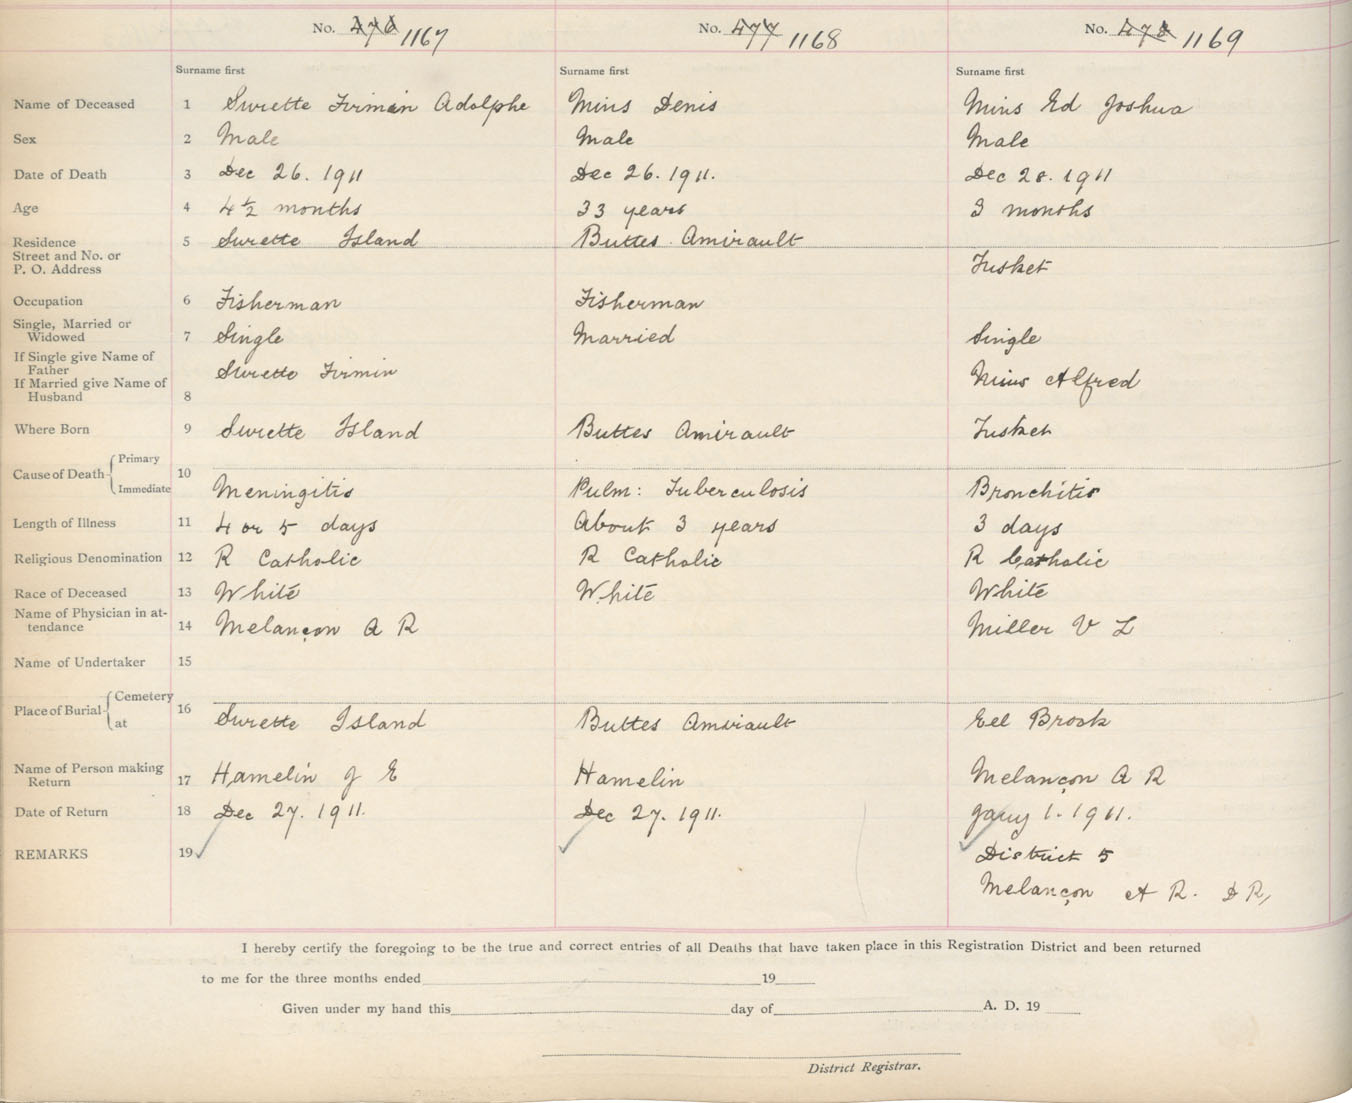 No. 476 1167 No. 477 1168 No. 478 1169
Surname first Surname first Surname first
Name of Deceased 1 Surette Firmin Adolphe Mius Denis Mius Ed Joshua
Sex 2 Male Male Male
Date of Death 3 Dec 26. 1911 Dec 26. 1911. Dec 28. 1911
Age 4 4½ months 33 years 3 months
Residence 5 Surette Island Buttes Amirault
Street and No. or
P. O. Address Tusket
Occupation 6 Fisherman Fisherman
Single, Married or
Widowed 7 Single Married Single
If Single give Name of
Father Surette Firmin Mius Alfred
If Married give Name of
Husband 8
Where Born 9 Surette Island Buttes Amirault Tusket
Cause of Death Primary 10
Immediate Meningitis Pulm: Tuberculosis Bronchitis
Length of Illness 11 4 or 5 days About 3 years 3 days
Religious Denomination 12 R Catholic R Catholic R Catholic
Race of Deceased 13 White White White
Name of Physician in at-
tendance 14 Melançon A R Miller V L
Name of Undertaker 15
Place of Burial Cemetery 16
at Surette Island Buttes Amirault Eel Brook
Name of Person making
Return 17 Hamelin J E Hamelin Melançon A R
Date of Return 18 Dec 27. 1911. Dec 27. 1911. Jany 1. 1911.
REMARKS 19 District 5
Melançon A R. D R,
I hereby certify the foregoing to be the true and correct entries of all Deaths that have taken place in this Registration District and been returned
to me for the three months ended 19
Given under my hand this day of A. D. 19
District Registrar.